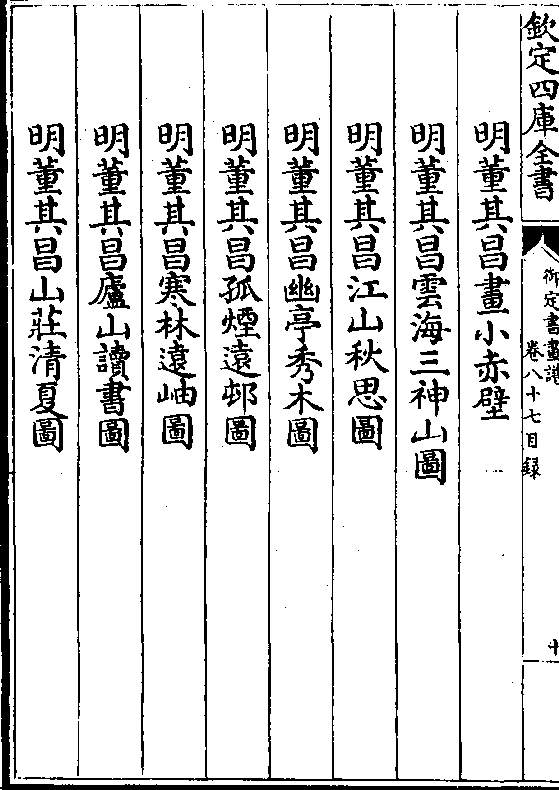 欽定四庫全書
御定書畫譜
卷八十七目録
十
明董其昌畫小赤壁
明董其昌雲海三神山圖
明董其昌江山秋思圖
明董其昌幽亭秀木圖
明董其昌孤煙遠邨圖
明董其昌寒林遠岫圖
明董其昌廬山讀書圖
明董其昌山莊清夏圖